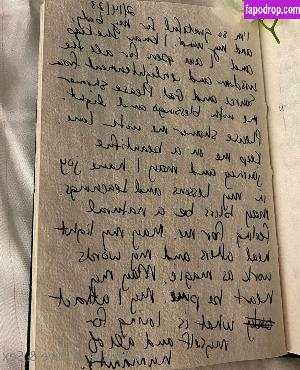 fapodrop.com
2/14/23
I'm so grateful for my body
and my mind. I know
open for all the
wisdom and enlightenment from
Source and God Please shower
me with blessings and light.
Please shower me with love.
Keep me on a beautiful
journey and may I have joy
in my lessons and teachings.
May bliss be a natural
feeling for me. May my light
heal others and my words
work as magic. May my
heart be pure. May I attract
what is loving for
myself and all of
humanity.